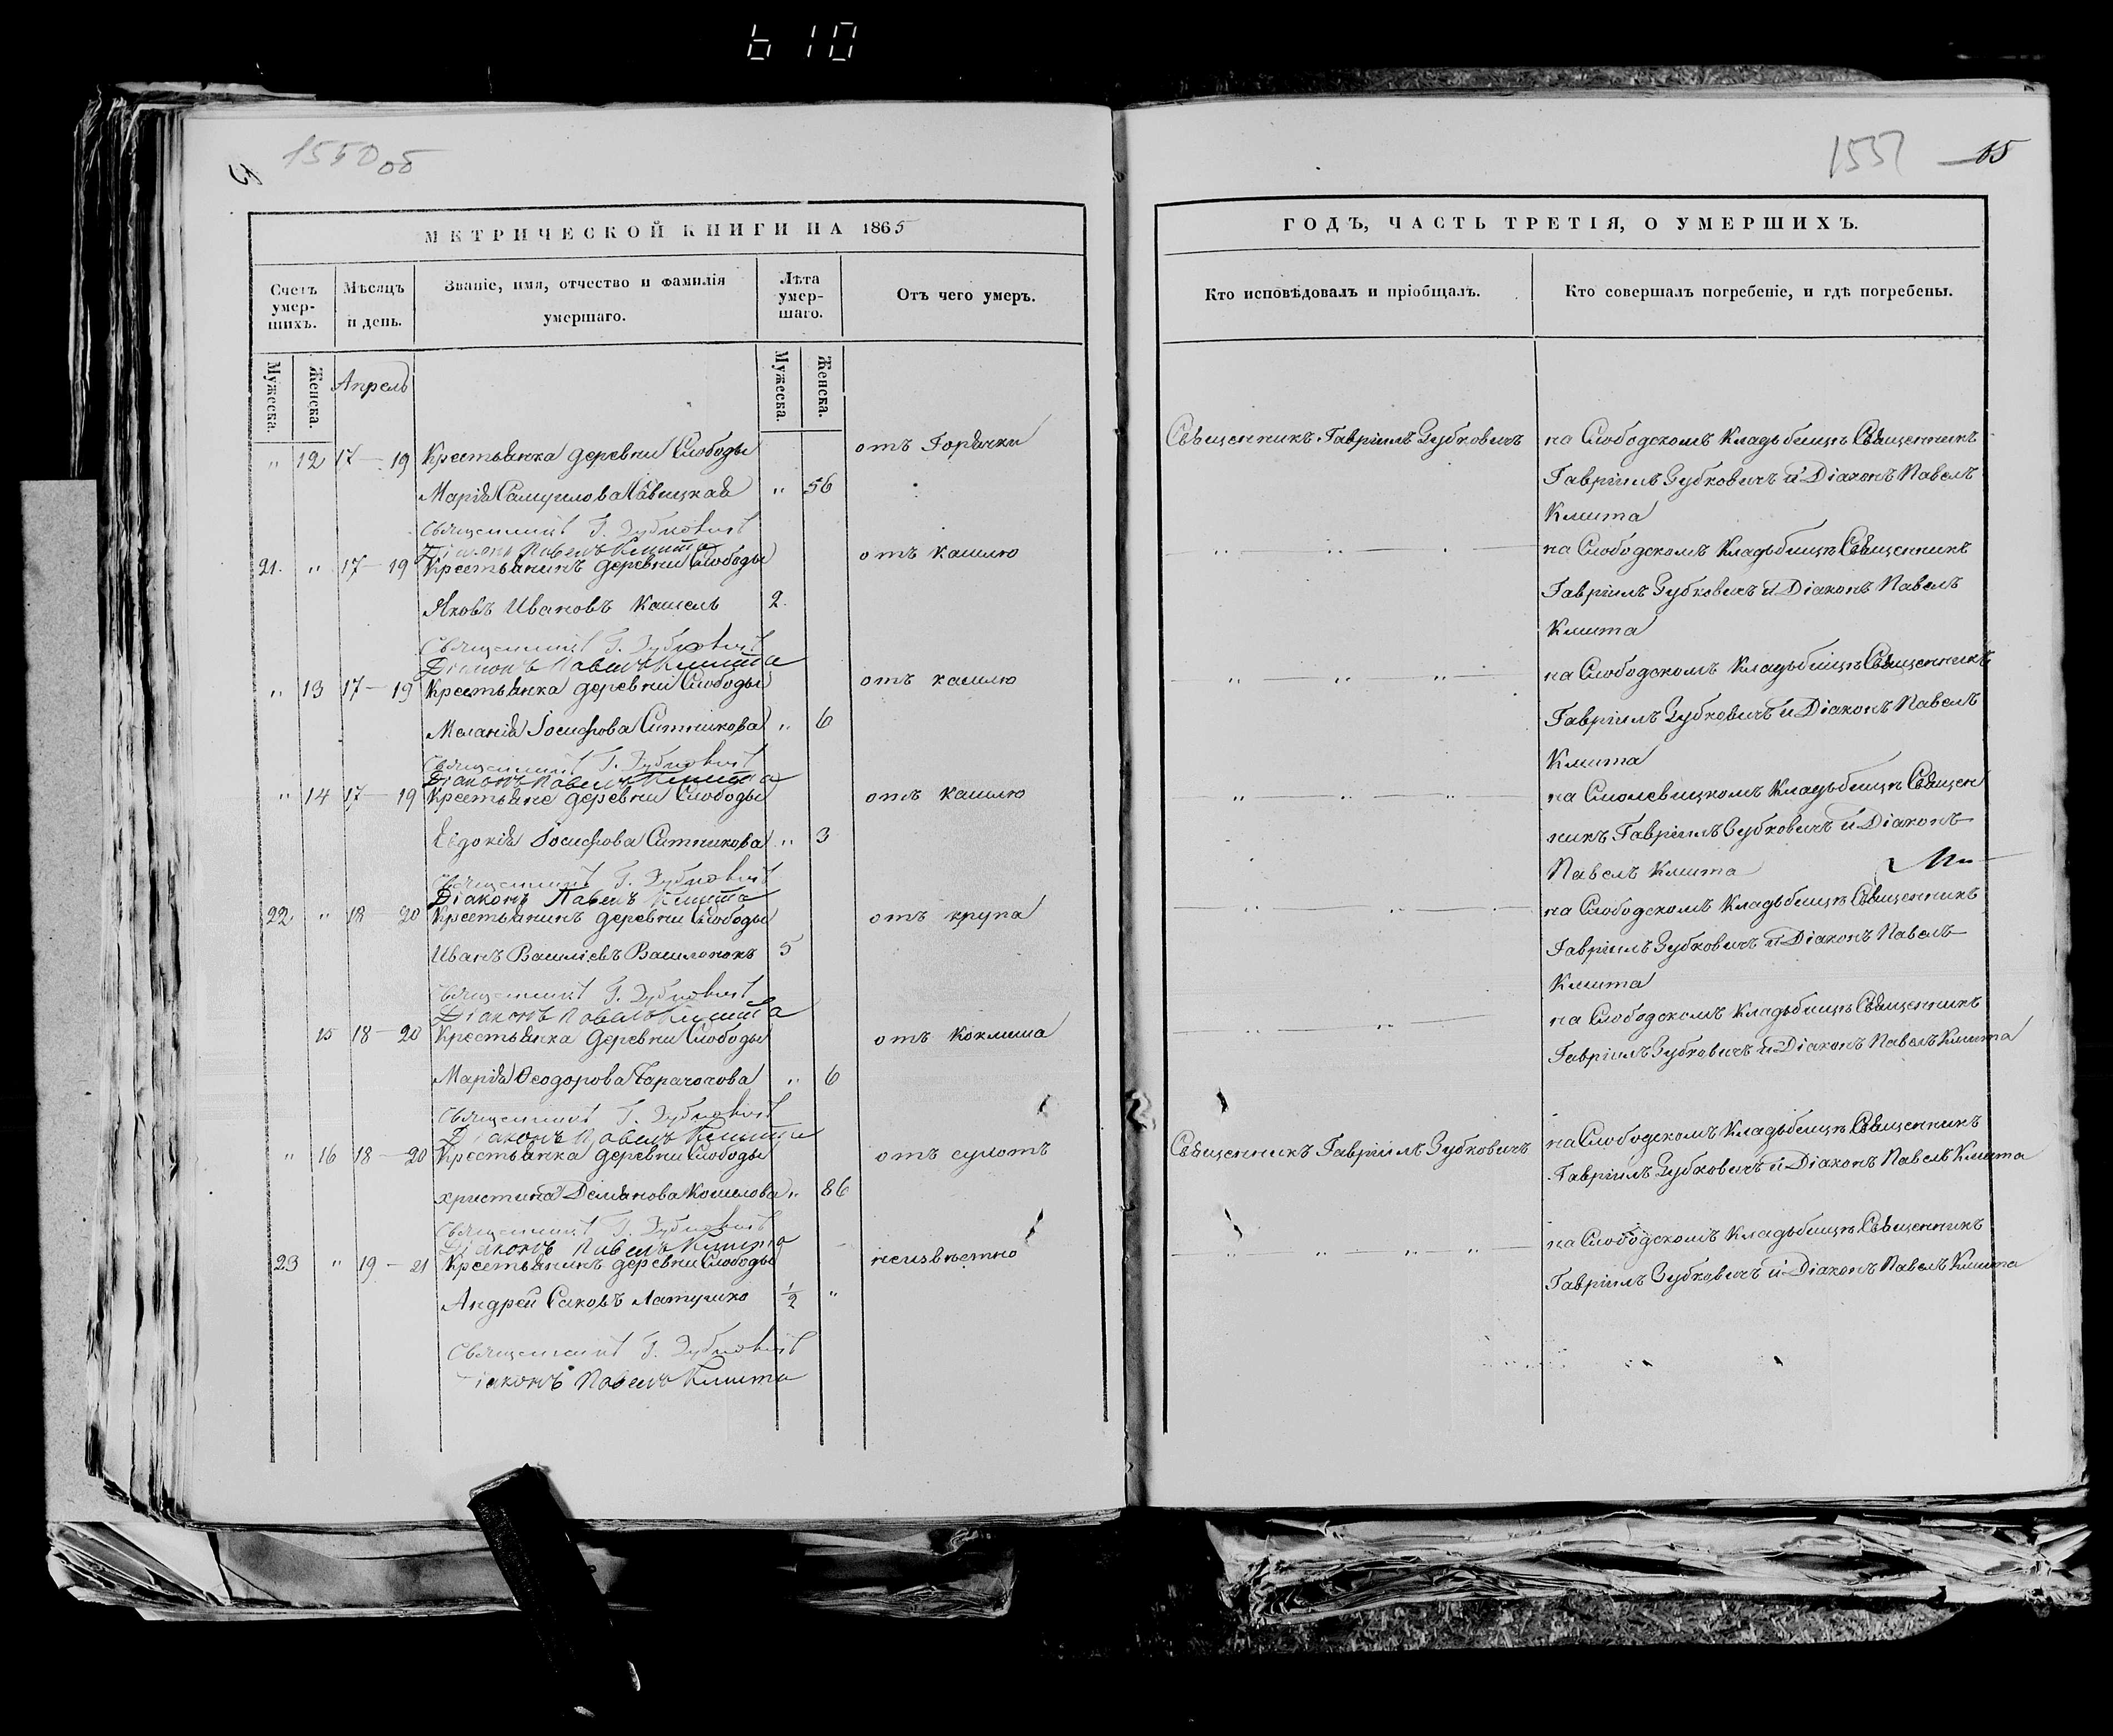 610
1550 об
155
15
МЕТРИЧЕСКОЙ КНИГИ НА 1865
ГОДЪ, ЧАСТЬ ТРЕТІЯ, О УМЕРШИХЪ.
Счетъ умер-
шихъ.
Мѣсяцъ
и день.
Званіе, имя, отчество и фамилія
умершаго.
Лѣта
умер-
шаго.
Отъ чего умеръ.
Кто исповѣдовалъ и пріобщалъ.
Кто совершалъ погребеніе, и гдѣ погребены.
Мужеска.
Женска.
Апрель
Мужеска.
Женска.
" 12 17 — 19 Крестьянка деревни Слободы отъ Горячки Священникъ Гавріилъ Зубковичъ на Слободскомъ Кладьбищѣ Священникъ
Марія Самуилова Савицкая " 56 Гавріилъ Зубковичъ и Діаконъ Павелъ
Кмита
Священникъ Г. Зубковичъ
Діаконъ Павелъ Кмита
21. " 17 — 19 Крестьянинъ деревни Слободы отъ кашлю " " на Слободскомъ Кладьбищѣ Священникъ
Яковъ Ивановъ Кашель 2. Гавріилъ Зубковичъ и Діаконъ Павелъ
Кмита
Священникъ Г. Зубковичъ
Діаконъ Павелъ Кмита
" 13 17 — 19 Крестьянка деревни Слободы отъ кашлю " " " на Слободскомъ Кладьбищѣ Священникъ
Меланія Іосифова Ситникова " 6 Гавріилъ Зубковичъ и Діаконъ Павелъ
Кмита
Священникъ Г. Зубковичъ
Діаконъ Павелъ Кмита
" 14 17 — 19 Крестьяне деревни Слободы отъ кашлю " " " на Смолевицкомъ Кладьбищѣ Священ
Евдокія Іосифова Ситникова " 3 никъ Гавріилъ Зубковичъ и Діаконъ
Павелъ Кмита
Священникъ Г. Зубковичъ
Діаконъ Павелъ Кмита
22. " 18 — 20 Крестьянинъ деревни Слободы отъ крупа " " на Слободскомъ Кладьбищѣ Священникъ
Иванъ Василіевъ Василонокъ 5 Гавріилъ Зубковичъ и Діаконъ Павелъ
Кмита
Священникъ Г. Зубковичъ
Діаконъ Павелъ Кмита
15 18 — 20 Крестьянка Деревни Слободы отъ Коклюша " " на Слободскомъ Кладьбищѣ Священникъ
Марія Феодорова " 6 Гавріилъ Зубковичъ и Діаконъ Павелъ Кмита
Священникъ Г. Зубковичъ
Діаконъ Павелъ Кмита
" 16 18 — 20 Крестьянка деревни Слободы отъ сухотъ Священникъ Гавріилъ Зубковичъ на Слободскомъ Кладьбищѣ Священникъ
христина Демянова Кошелова " 86 Гавріилъ Зубковичъ и Діаконъ Павелъ Кмита
Священникъ Г. Зубковичъ
Діаконъ Павелъ Кмита
23 " 19 — 21 Крестьянинъ деревни Слободы неизвѣстно " " " " на Слободскомъ Кладьбищѣ Священникъ
Андрей Саковъ Латушко 1/2 " Гавріилъ Зубковичъ и Діаконъ Павелъ Кмита
Священникъ Г. Зубковичъ
іаконъ Павелъ Кмита